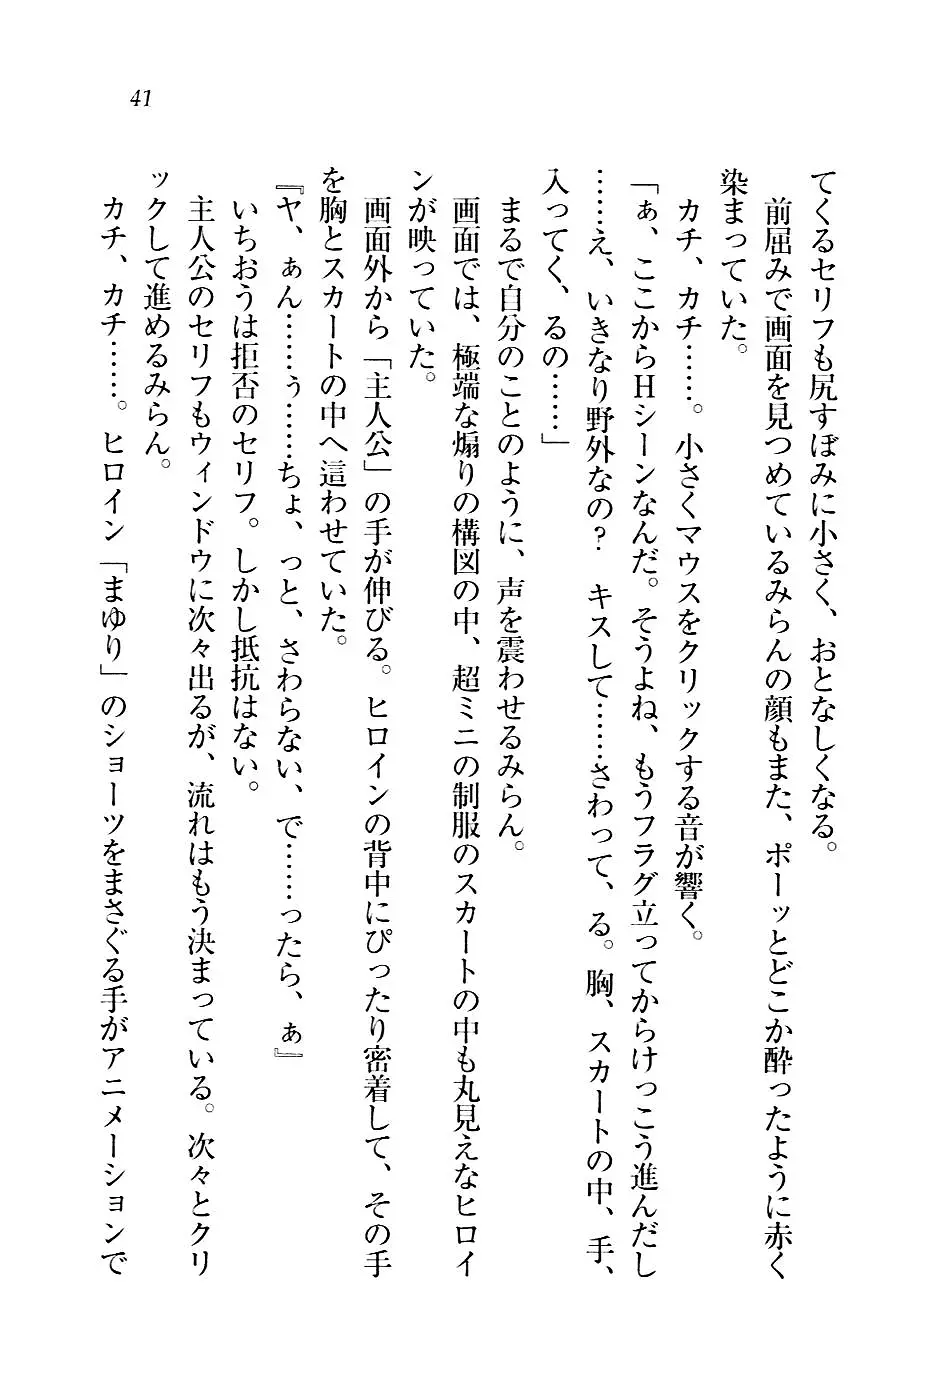 41
てくるセリフも尻すぼみに小さく、おとなしくなる。
前屈みで画面を見つめているみらんの顔もまた、ポーッとどこか酔ったように赤く
染まっていた。
カチ、カチ……。小さくマウスをクリックする音が響く。
「ぁ、ここからHシーンなんだ。そうよね、もうフラグ立ってからけっこう進んだし
……え、いきなり野外なの？　キスして……さわって、る。胸、スカートの中、手、
入ってく、るの……」
まるで自分のことのように、声を震わせるみらん。
画面では、極端な煽りの構図の中、超ミニの制服のスカートの中も丸見えなヒロイ
ンが映っていた。
画面外から「主人公」の手が伸びる。ヒロインの背中にぴったり密着して、その手
を胸とスカートの中へ這わせていた。
『ヤ、ぁん……ぅ……ちょ、っと、さわらない、で……ったら、ぁ』
いちおうは拒否のセリフ。しかし抵抗はない。
主人公のセリフもウィンドウに次々出るが、流れはもう決まっている。次々とクリ
ックして進めるみらん。
カチ、カチ……。ヒロイン「まゆり」のショーツをまさぐる手がアニメーションで